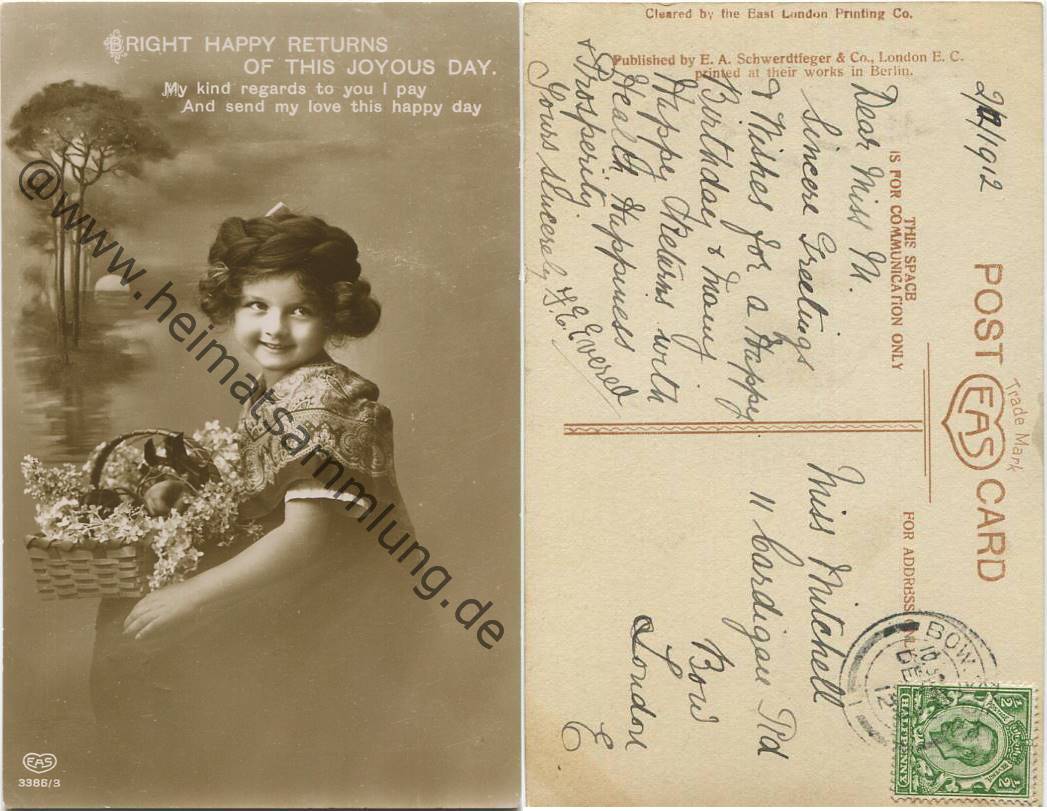 BRIGHT HAPPY RETURNS
OF THIS JOYOUS DAY.
My kind regards to you I pay
And send my love this happy day
@www.heimatsammlung.de
EAS
3386/3
Cleared by the East London Printing Co.
Published by E. A. Schwerdtfeger & Co., London E. C.
printed at their works in Berlin.
POST CARD
Trade Mark
EAS
THIS SPACE
IS FOR COMMUNICATION ONLY
FOR ADDRESS ONLY
/1912
Dear Miss M.
Sincere Greetings
& Wishes for a Happy
Birthday & Many
Happy Returns with
Health, Happiness
& Prosperity.
Yours sincerely
E. Evered
Miss Mitchell
11 Cardigan Rd
Bow
London
E
BOW.
DE
12
½ ½
HALFPENNY